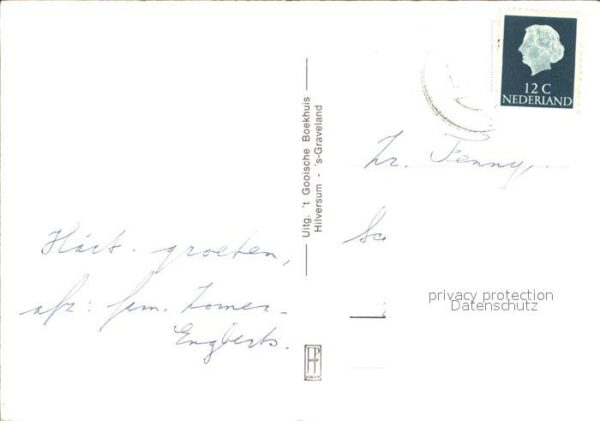 Hart. groeten,
afz: fam. Zomer-
Engberts.
Uitg. 't Gooische Boekhuis
Hilversum - 's-Graveland
12 C
NEDERLAND
Zr. Fenny,
privacy protection
Datenschutz